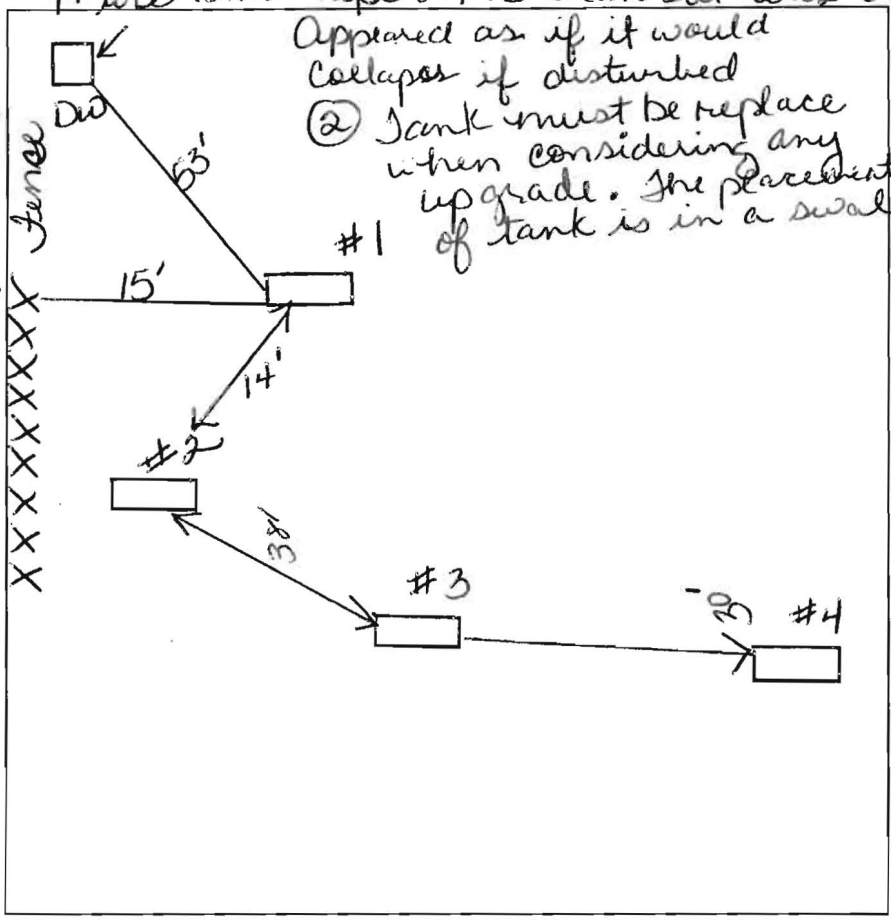 Appeared as if it would
collapos if disturbed
② Tank must be replace
when considering any
upgrade. The placement
of tank is in a swal
DW
Fence
53'
#1
15'
14'
#2
38'
#3
30'
#4
XXXXXXXXX